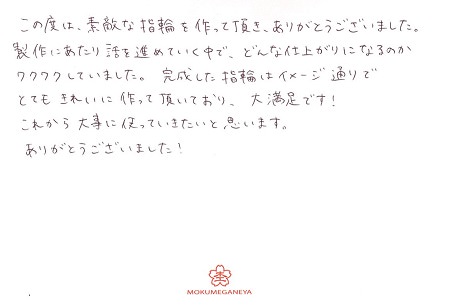 この度は、素敵な指輪を作って頂き、ありがとうございました。
製作にあたり話を進めていく中で、どんな仕上がりになるのか
ワクワクしていました。完成した指輪はイメージ通りで
とてもきれいに作って頂いており、大満足です！
これから大事に使っていきたいと思います。
ありがとうございました！
MOKUMEGANEYA